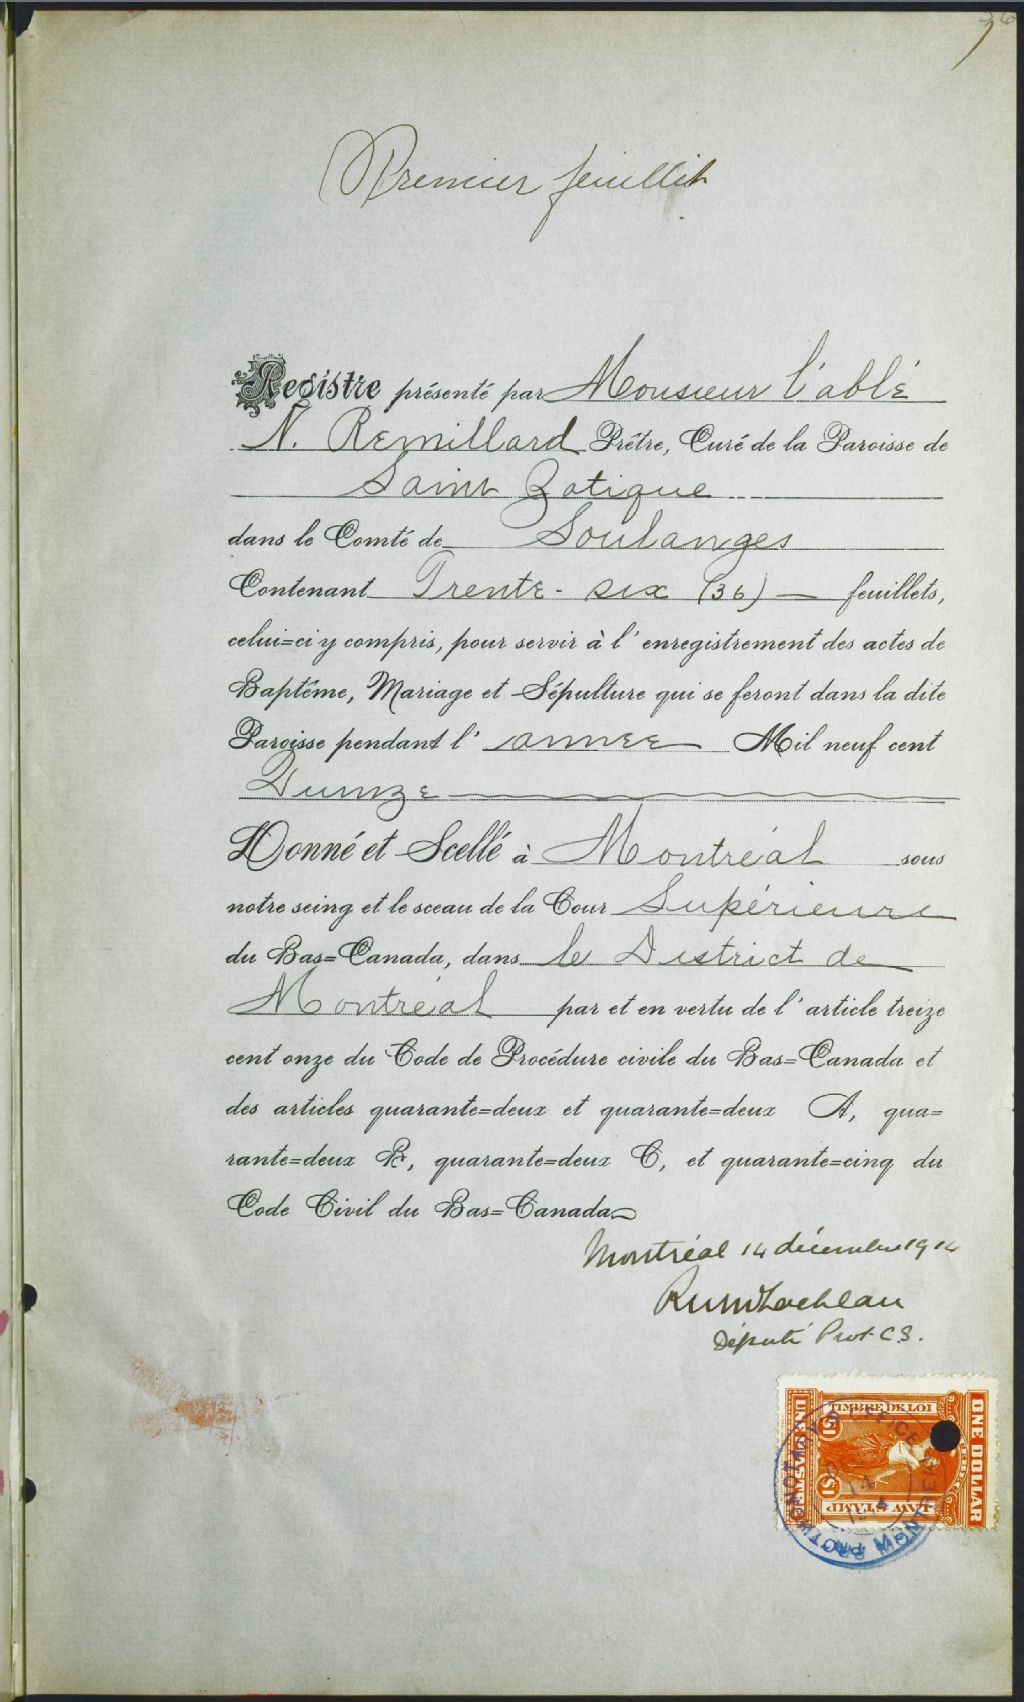 36
Premier feuillet
Registre présenté par Monsieur l'abbé
N. Remillard Prêtre, Curé de la Paroisse de
Saint Zotique
dans le Comté de Soulanges
Contenant Trente-six (36) feuillets,
celui=ci y compris, pour servir à l'enregistrement des actes de
Baptême, Mariage et Sépulture qui se feront dans la dite
Paroisse pendant l'année Mil neuf cent
Quinze
Donné et Scellé à Montréal sous
notre seing et le sceau de la Cour Supérieure
du Bas=Canada, dans le District de
Montréal par et en vertu de l'article treize
cent onze du Code de Procédure civile du Bas=Canada et
des articles quarante=deux et quarante=deux A, qua=
rante=deux B, quarante=deux C, et quarante=cinq du
Code Civil du Bas=Canada
Montréal 14 décembre 1914
Député Prot. C.S.
TIMBRE DE LOI
$1
$1
LAW STAMP
ONE DOLLAR
UNE PIASTRE
PROTHONOTARY'S OFFICE
MONTREAL
14